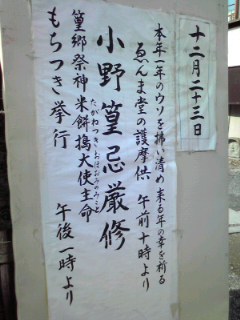 十二月二十三日
本年一年のウソを払い清め 来る年の幸を祈る
ゑんま堂の護摩供 午前十時より
小野篁忌厳修
たかねつきおほおみのみこと
篁郷祭神 米餅搗大使主命
もちつき挙行 午後一時より